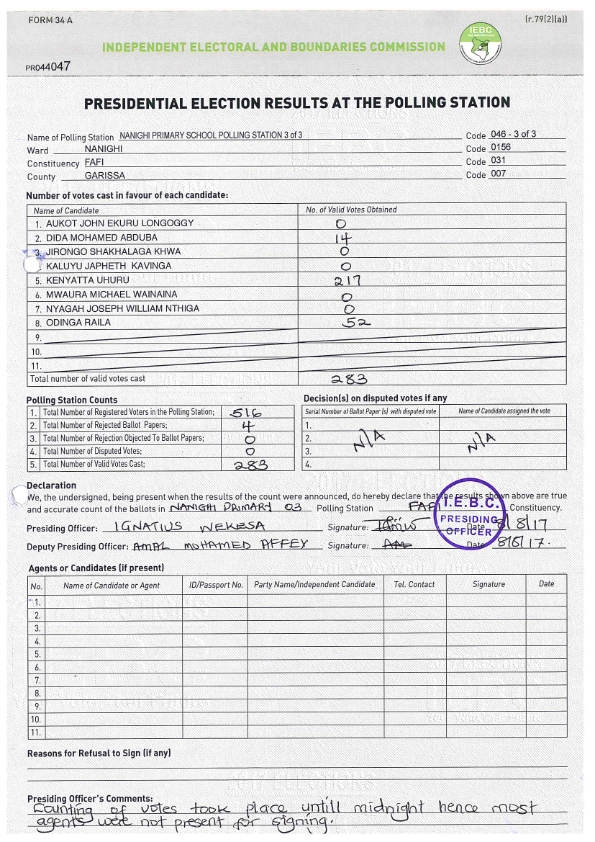 FORM 34 A
(r.79(2)(a))
IEBC
INDEPENDENT ELECTORAL AND BOUNDARIES COMMISSION
PRO44047
PRESIDENTIAL ELECTION RESULTS AT THE POLLING STATION
Name of Polling Station NANIGHI PRIMARY SCHOOL POLLING STATION 3 of 3 Code 046 - 3 of 3
Ward NANIGHI Code 0156
Constituency FAFI Code 031
County GARISSA Code 007
Number of votes cast in favour of each candidate:
Name of Candidate No. of Valid Votes Obtained
1. AUKOT JOHN EKURU LONGOGGY 0
2. DIDA MOHAMED ABDUBA 14
3. JIRONGO SHAKHALAGA KHWA 0
KALUYU JAPHETH KAVINGA 0
5. KENYATTA UHURU 217
6. MWAURA MICHAEL WAINAINA 0
7. NYAGAH JOSEPH WILLIAM NTHIGA 0
8. ODINGA RAILA 52
9.
10.
11.
Total number of valid votes cast 283
Polling Station Counts
1. Total Number of Registered Voters in the Polling Station; 516
2. Total Number of Rejected Ballot Papers; 4
3. Total Number of Rejection Objected To Ballot Papers; 0
4. Total Number of Disputed Votes; 0
5. Total Number of Valid Votes Cast; 283
Decision(s) on disputed votes if any
Serial Number of Ballot Paper (s) with disputed vote Name of Candidate assigned the vote
1.
2. N/A N/A
3.
4.
Declaration
We, the undersigned, being present when the results of the count were announced, do hereby declare that the results shown above are true
and accurate count of the ballots in NANIGHI PRIMARY 03 Polling Station FAFI Constituency.
Presiding Officer: IGNATIUS WEKESA Signature: Date 8/8/17
Deputy Presiding Officer: AMAL MOHAMED AFFEY Signature: Date 8/8/17.
I.E.B.C.
PRESIDING
OFFICER
Agents or Candidates (if present)
No. Name of Candidate or Agent ID/Passport No. Party Name/Independent Candidate Tel. Contact Signature Date
1.
2.
3.
4.
5.
6.
7.
8.
9.
10.
11.
Reasons for Refusal to Sign (if any)
Presiding Officer's Comments:
Counting of votes took place untill midnight hence most
agents were not present for signing.